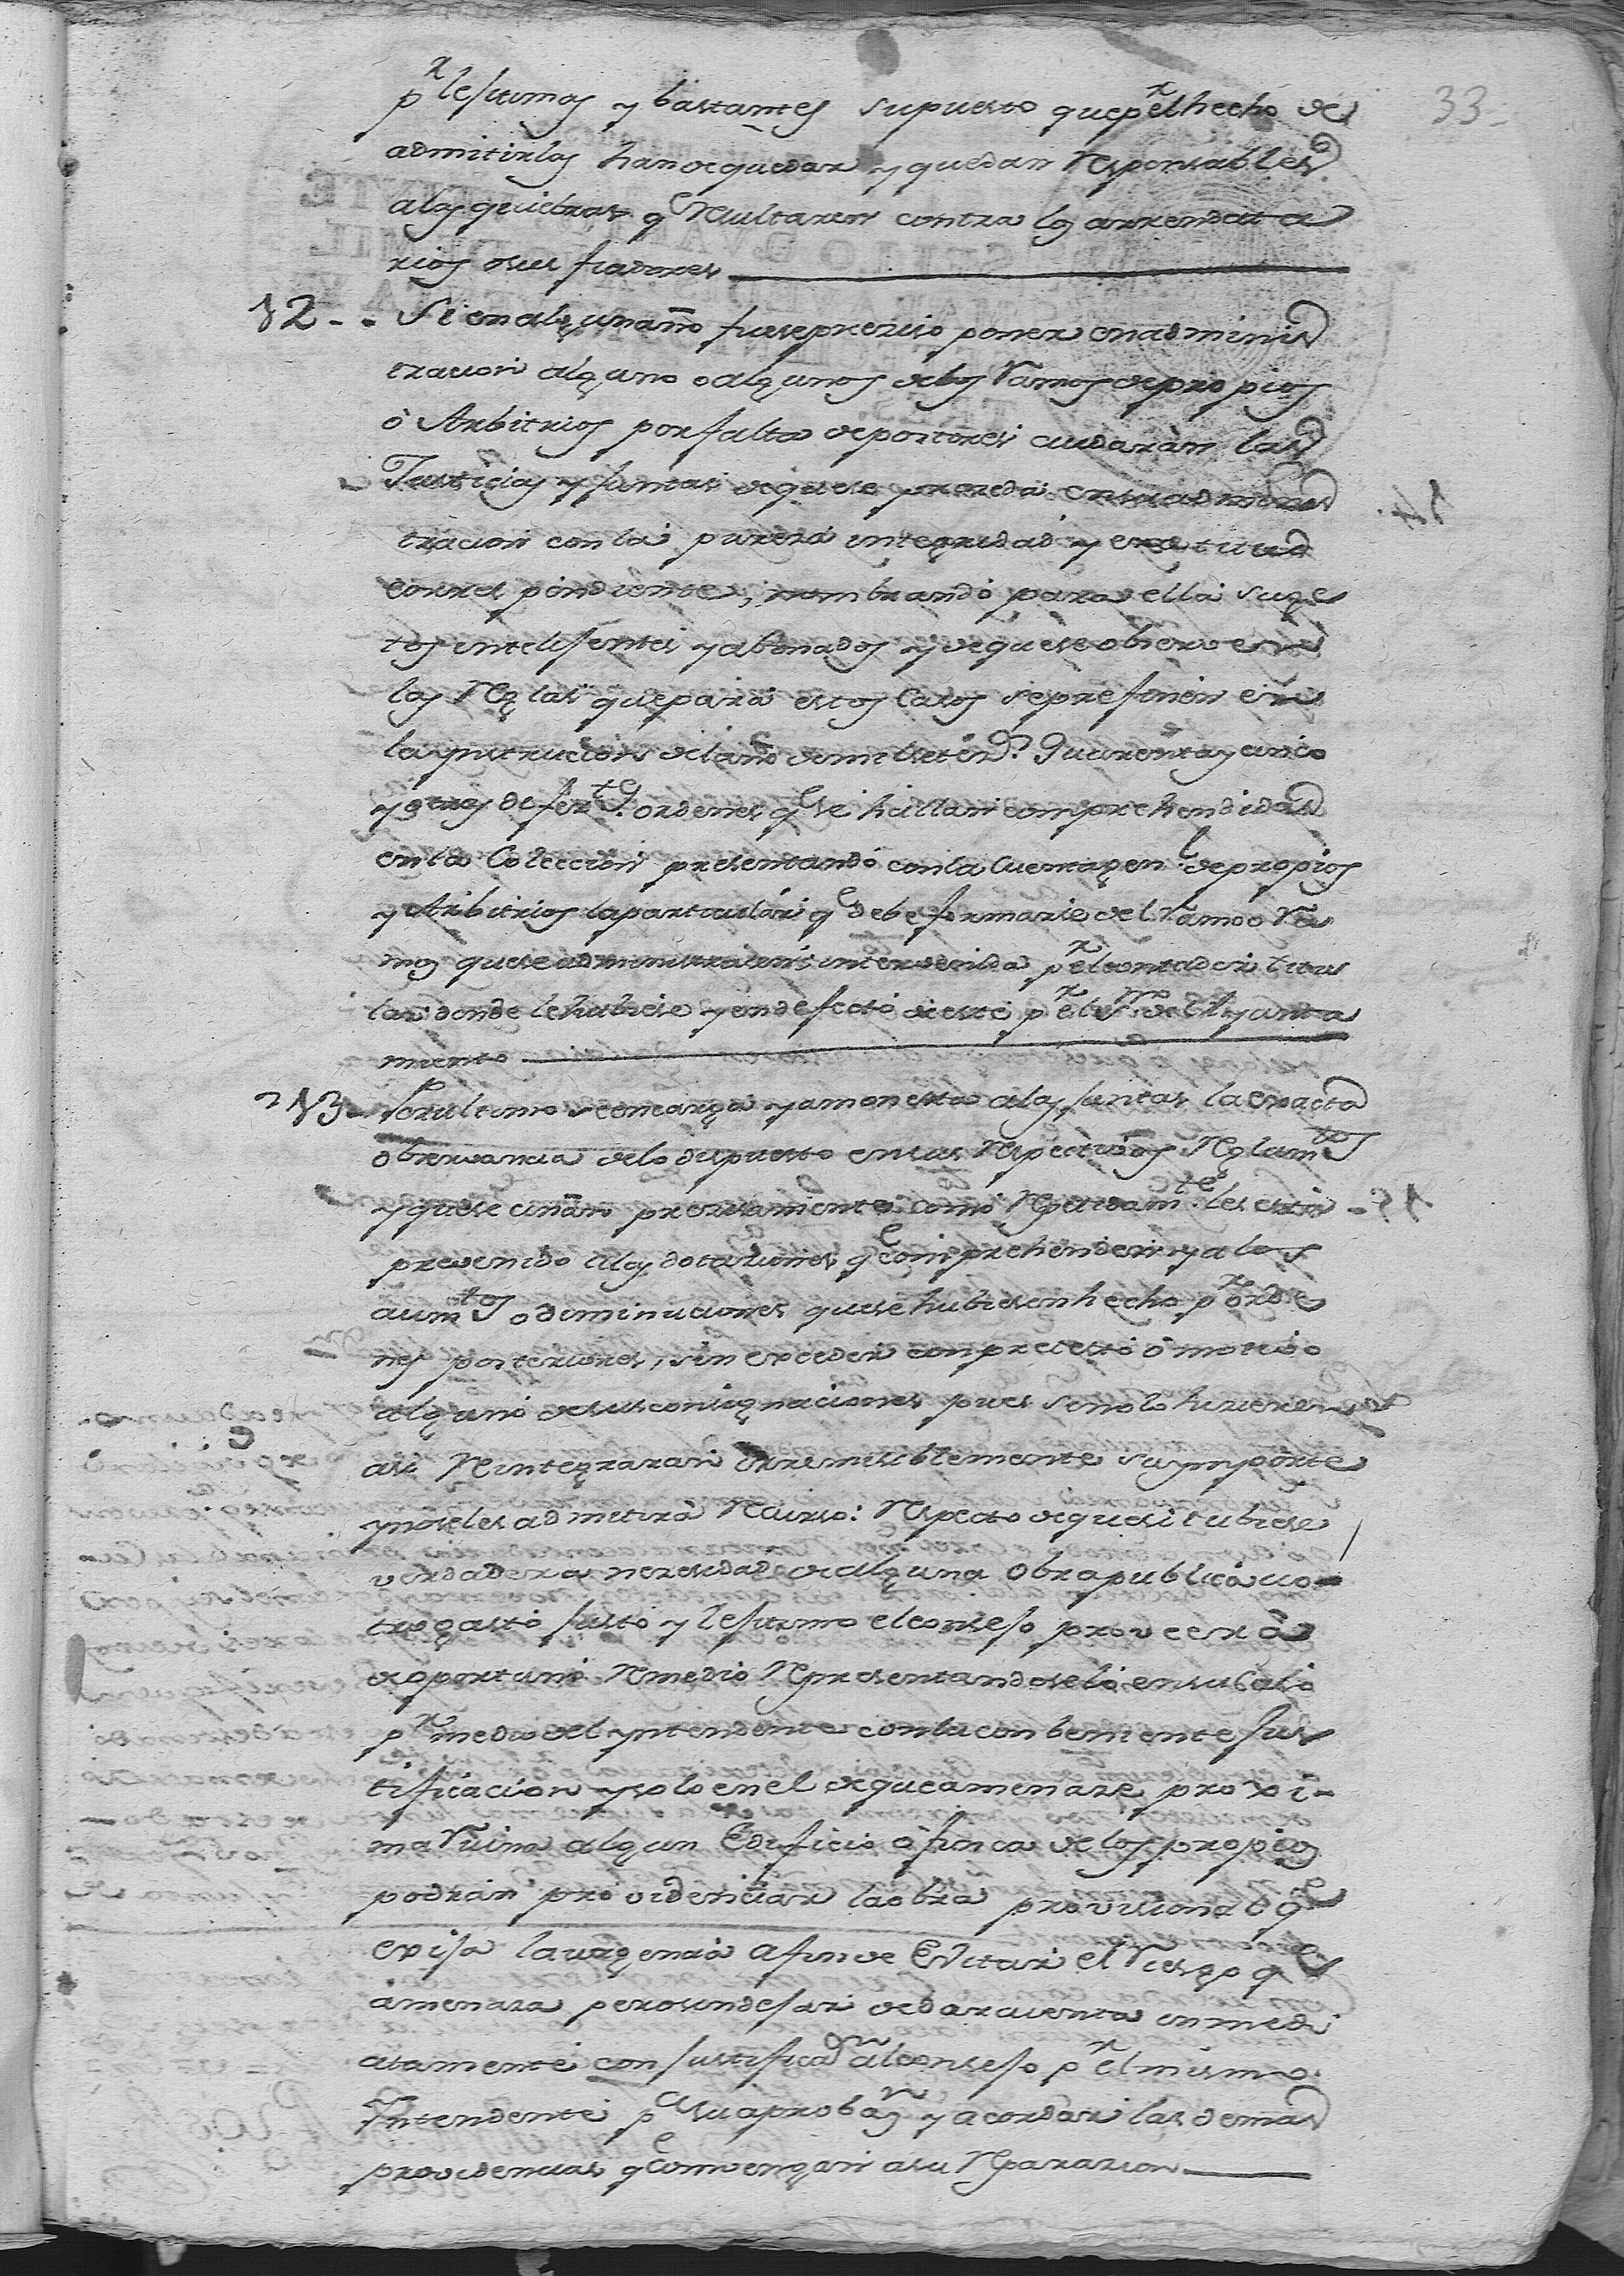 33
pr lexitimos y bastantes supuesto que pr el hecho de
admitirlos han de quedar y quedan Responsables
a las quiebras qe Resultaren contra los arrendata
rios o sus fiadores
12 - . Si en algun año fuese preciso poner en adminis
tracion alguno o algunos de los Ramos de propios
ò Arbitrios por falta de postores cuidaràn las
Justicias y Juntas de que se proceda en su adminis
tracion con la pureza integridad y exactitud
correspondiente, nombrando para ella suge
tos intelijentes y abonados y de que se observen
las Reglas que para estos casos se prefinen en
la ynstruccion del año de mil seteços. Quarenta y cinco
y otras difertes. ordenes qe se hallan comprehendidas
en la Coleccion presentando con la cuenta genl. de propios
y Arbitrios la particular qe debe formarse del Ramo o Ra
mos que se administrasen intervenida pr el contador titu
lar donde le hubiese y en defecto de este pr el Ssno del Ayunta
miento
13 - Por ultimo se encarga y amonesta a las Juntas la exacta
observancia de lo dispuesto en sus Respectivos Reglamtos
y que se ciñan precisamente como Repetidamte. les està
prevenido a las dotaciones qe comprehenden y a los
aumtos o diminuciones que se hubiesen hecho pr orde
nes posteriores, sin exceder con pretesto ò motivo
alguno de sus consignaciones pues si no lo hicieren
asi Reintegraran irremisiblemente su ymporte
y no se les admitirà Recurso: Respecto de que si tubiese
verdadera necesidad de alguna obra publica u o-
tro gasto justo y lejitimo el consejo proveerà
de oportuno Remedio Representandoselo en su caso
pr medio del yntendente con la conbeniente jus
tificacion y solo en el de que amenaze proxi-
ma Ruina algun Edificio ò finca de los propios
podràn providenciar la obra provisional qe
exija la urgencia a fin de Evitar el Riesgo qe
amenaza pero sin dejar de dar cuenta inmedi
atamente con justificaon al consejo pr el mismo
Yntendente pa su aprobaon y acordar las demas
providencias qe convengan a su Reparacion